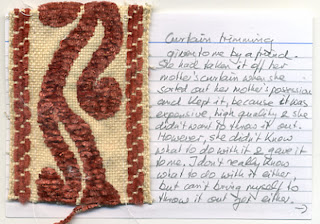 Curtain trimming
given to me by a friend.
She had taken it off her
mother's curtain when she
sorted out her mother's possession
and kept it, because it was
expensive, high quality & she
didn't want to throw it out.
However, she didn't know
what to do with it & gave it
to me. I don't really know
what to do with it either,
but can't bring myself to
throw it out yet either.